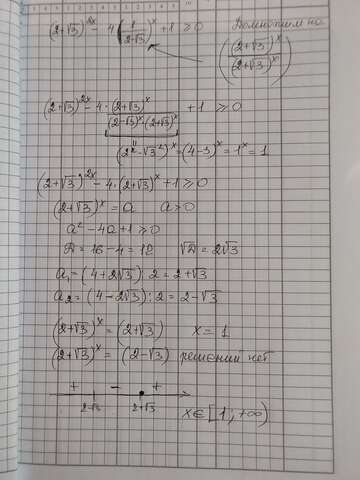 (2+√3)^2x − 4(1/(2−√3))^x + 1 ⩾ 0
Домножим на
((2+√3)^x/(2+√3)^x)
(2+√3)^2x − 4·(2+√3)^x/((2−√3)^x·(2+√3)^x) + 1 ⩾ 0
(2²−√3²)^x = (4−3)^x = 1^x = 1
(2+√3)^2x − 4·(2+√3)^x + 1 ⩾ 0
(2+√3)^x = a a>0
a² − 4a + 1 ⩾ 0
D = 16 − 4 = 12 √D = 2√3
a₁ = (4+2√3):2 = 2+√3
a₂ = (4−2√3):2 = 2−√3
(2+√3)^x = (2+√3) x = 1
(2+√3)^x = (2−√3) решений нет
+ − +
2−√3 2+√3
x∈[1; +∞)